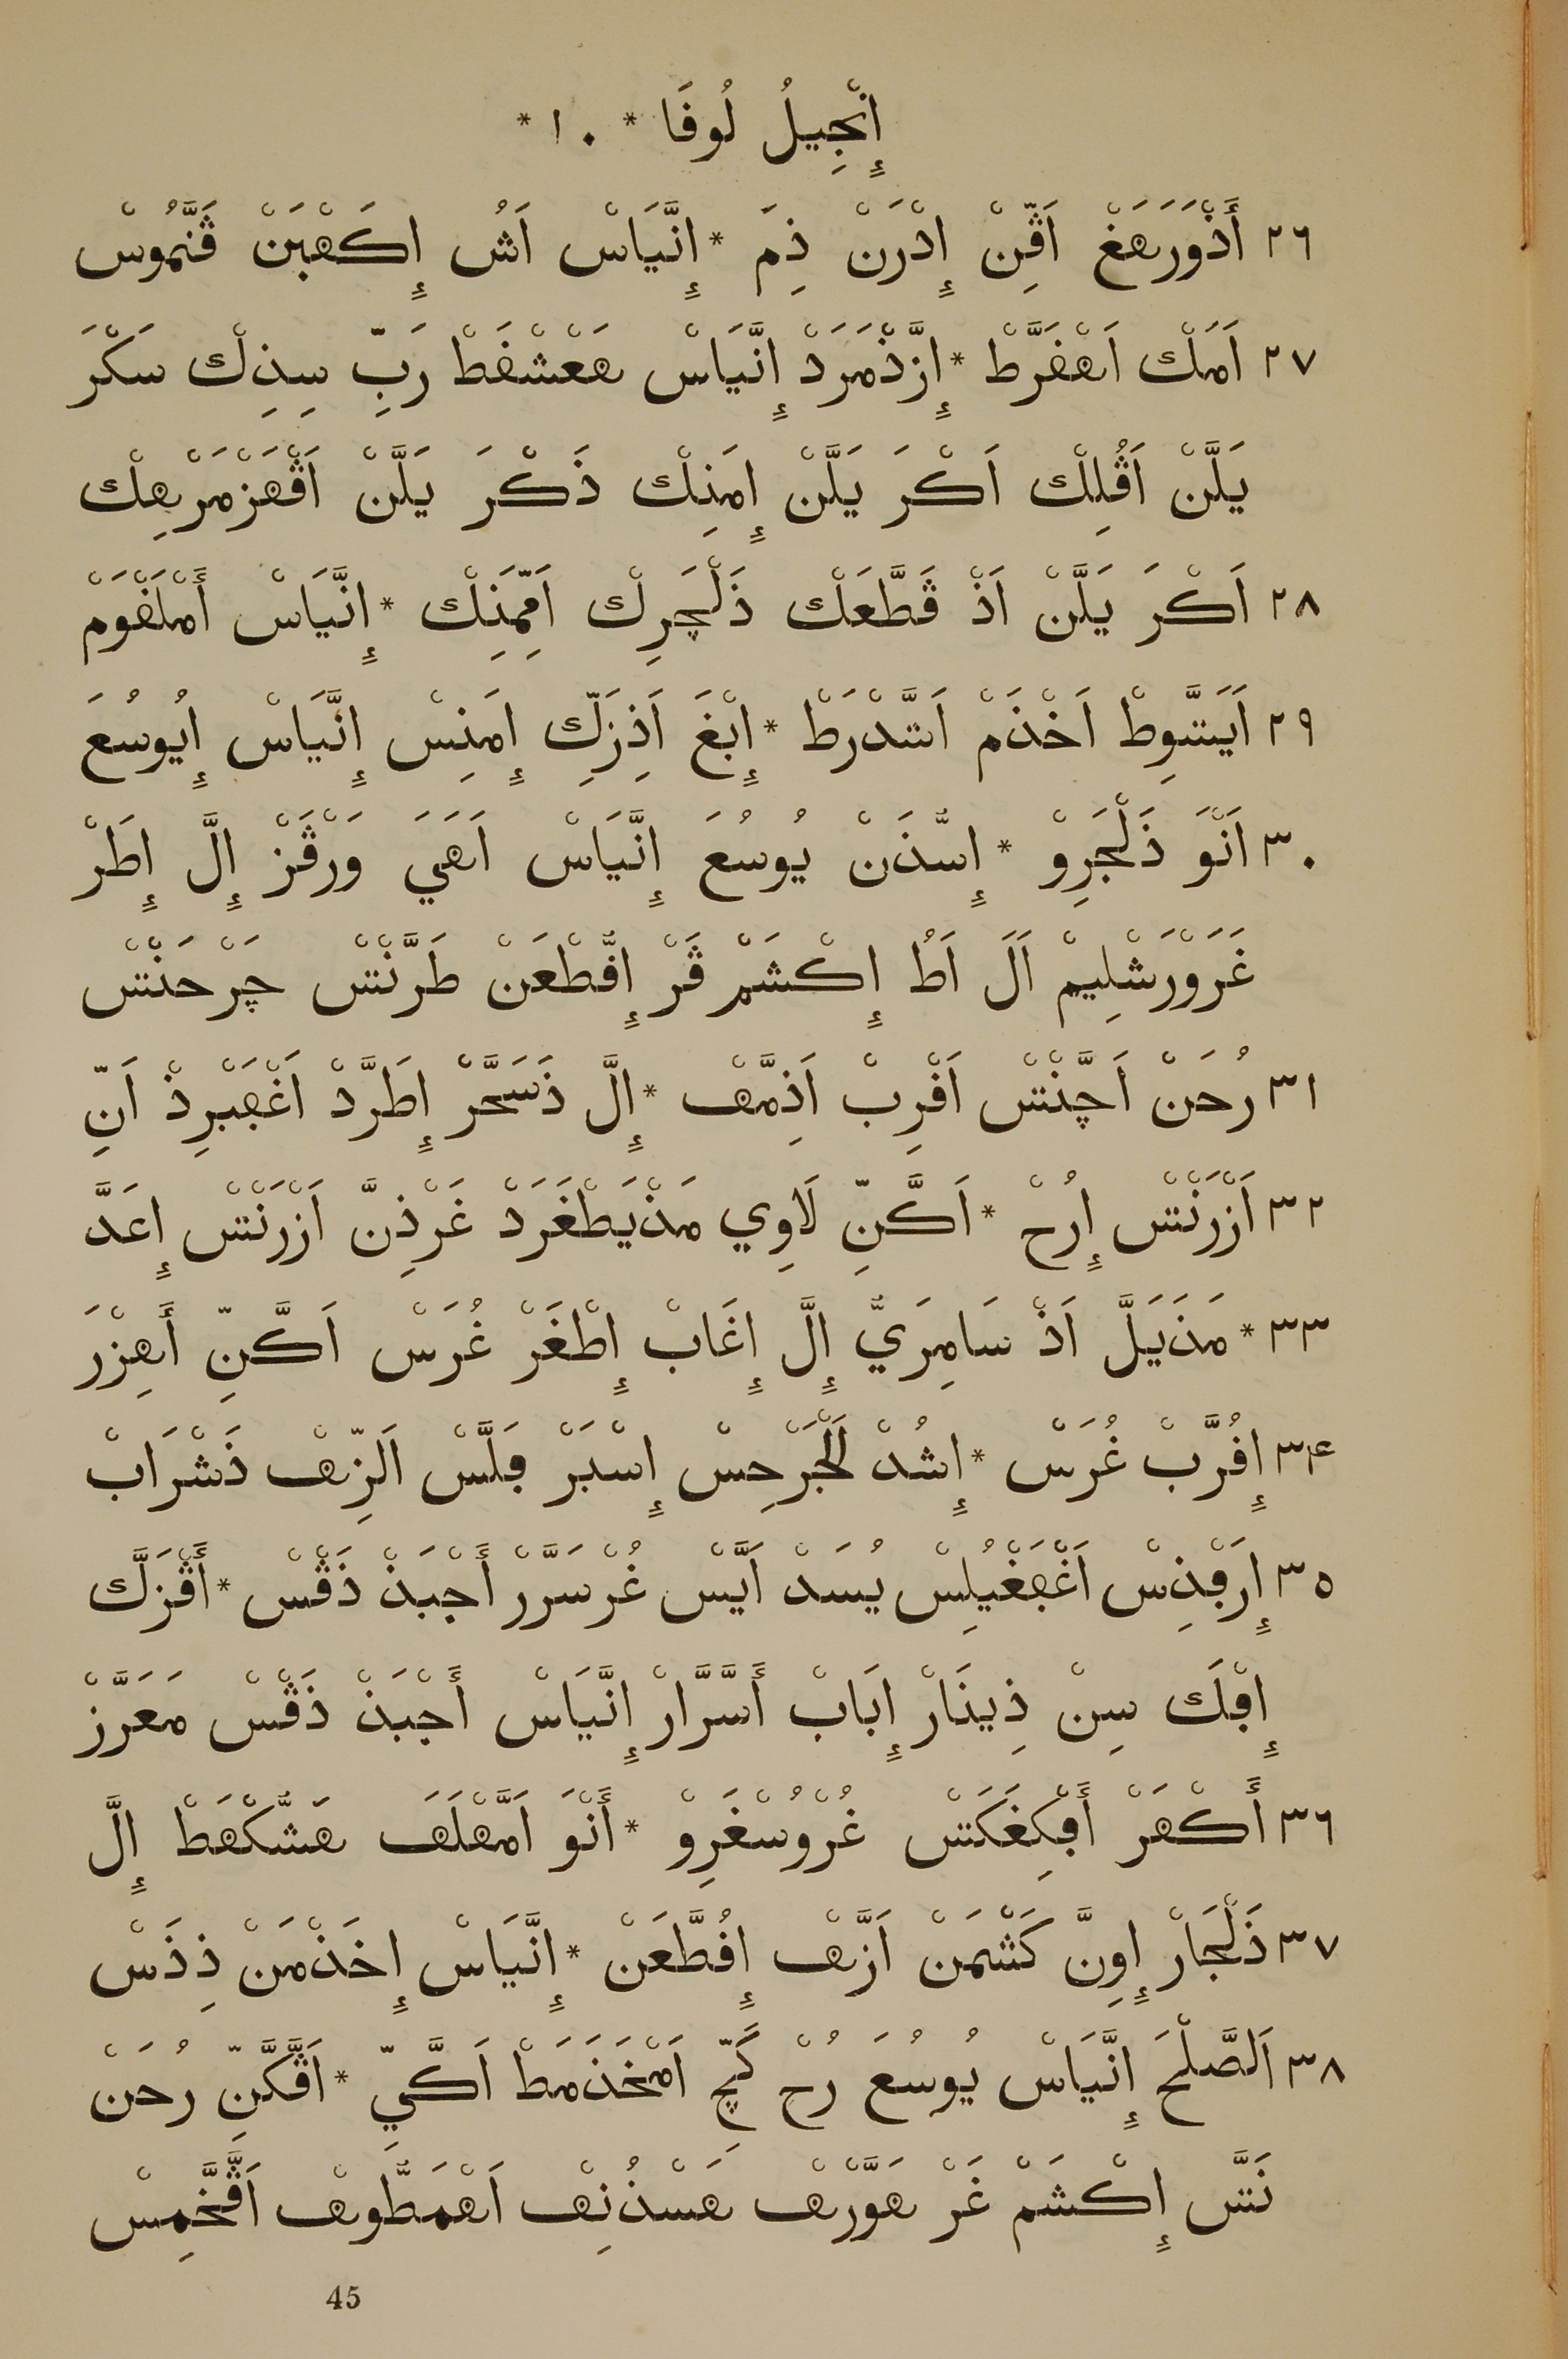 إِنْجِيلُ لُوقَا * ١٠ *
٢٦ أَذْوَرَهَغْ اَڤِّنْ إِدْرَنْ ذِمَ * إِنَّيَاسْ اَشُ إِكَهْبَنْ ڤَنَّمُوسْ
٢٧ اَمَكْ اَهْفَرَّطْ * إِرَّذْمَرَدْ إِنَّيَاسْ هَعْشْفَطْ رَبِّ سِذِكْ سَكْرَ
يَلَّنْ اَڤُلِكْ اَكْرَ يَلَّنْ إِمَنِكْ ذَكْرَ يَلَّنْ اَڤْهَزْمَرْهِكْ
٢٨ اَكْرَ يَلَّنْ اَذْ ڤَطَّعَكْ ذَلْجَرِكْ اَمِّمَنِكْ * إِنَّيَاسْ أَمْلَفَوْمْ
٢٩ اَيَتَّوِطْ اَخْذَمْ اَتَّدْرَطْ * إِبْغَ اَذِزَكِّ إِمَنِسْ إِنَّيَاسْ إِيُوسُعَ
٣٠ اَنْوَ ذَلْجَرِوْ * إِسَّذَنْ يُوسُعَ إِنَّيَاسْ اَهَيَ وَرْڤَزْ إِلَّ إِطَرْ
غَرَوْرَشْلِيمْ اَلَ اَطُ إِكْشَمْ ڤَرْ إِقُّطْعَنْ طَرَّنْتْ جَرْحَنْتْ
٣١ رُحَنْ اَجَّنْتْ اَقْرِبْ اَذِمَّهْ * إِلَّ ذَسَحَّرْ إِطَرَّدْ اَغْهَبْرِذْ اَنِّ
٣٢ اَزْرَنْتْ إِرُحْ * اَكَّنِّ لَاوِي مَذْيَطْغَرَدْ غَرْذِنَّ اَزْرَنْتْ إِعَدَّ
٣٣ * مَذَيَلَّ اَذْ سَامِرَيُّ إِلَّ إِغَابْ إِطْغَرْ غُرَسْ اَكَّنِّ أَهِزْرَ
٣٤ إِقُرَّبْ غُرَسْ * إِشُدْ لَجْرَحِسْ إِسْبَرْ فَلَّسْ اَلزِّهْ ذَشْرَابْ
٣٥ إِرَفْذِسْ اَغْهَغْيُلِسْ يُسَدْ اَيَّسْ غُرْسَرَّرْ أَجْبَذْ ذَڤْسْ * أَڤْزَكَّ
إِفْكَ سِنْ ذِينَارْ إِبَابْ أَسَّرَّارْ إِنَّيَاسْ أَجْبَذْ ذَڤْسْ مَعَرَّزْ
٣٦ أَكْهَرْ أَفْكِغَكَتْ غُرْوُسْغَرِوْ * أَنْوَ اَمَّهْلَهَ هَشُّكْهَطْ إِلَّ
٣٧ ذَلْجَارْ إِوِنَّ كَشْمَنْ اَزَّهْ إِقُطَّعَنْ * إِنَّيَاسْ إِخَذْمَنْ ذِذَسْ
٣٨ اَلصَّلْحَ إِنَّيَاسْ يُوسُعَ رُحْ كَجِّ اَمْخَذَمَطْ اَكَّيِّ * اَڤَّكَّنِّ رُحَنْ
نَتَّ إِكْشَمْ غَرْ هَوَّرْهْ هَسْذُنِهْ اَهْمَطُّوهْ اَڤَّخَّمِسْ
45